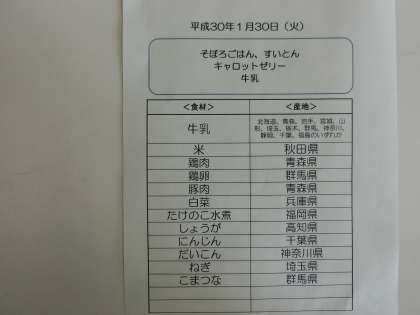 平成30年1月30日（火）
そぼろごはん、すいとん
キャロットゼリー
牛乳
＜食材＞ ＜産地＞
牛乳 北海道、青森、岩手、宮城、山
形、埼玉、栃木、群馬、神奈川、
静岡、千葉、福島のいずれか
米 秋田県
鶏肉 青森県
鶏卵 群馬県
豚肉 青森県
白菜 兵庫県
たけのこ水煮 福岡県
しょうが 高知県
にんじん 千葉県
だいこん 神奈川県
ねぎ 埼玉県
こまつな 群馬県